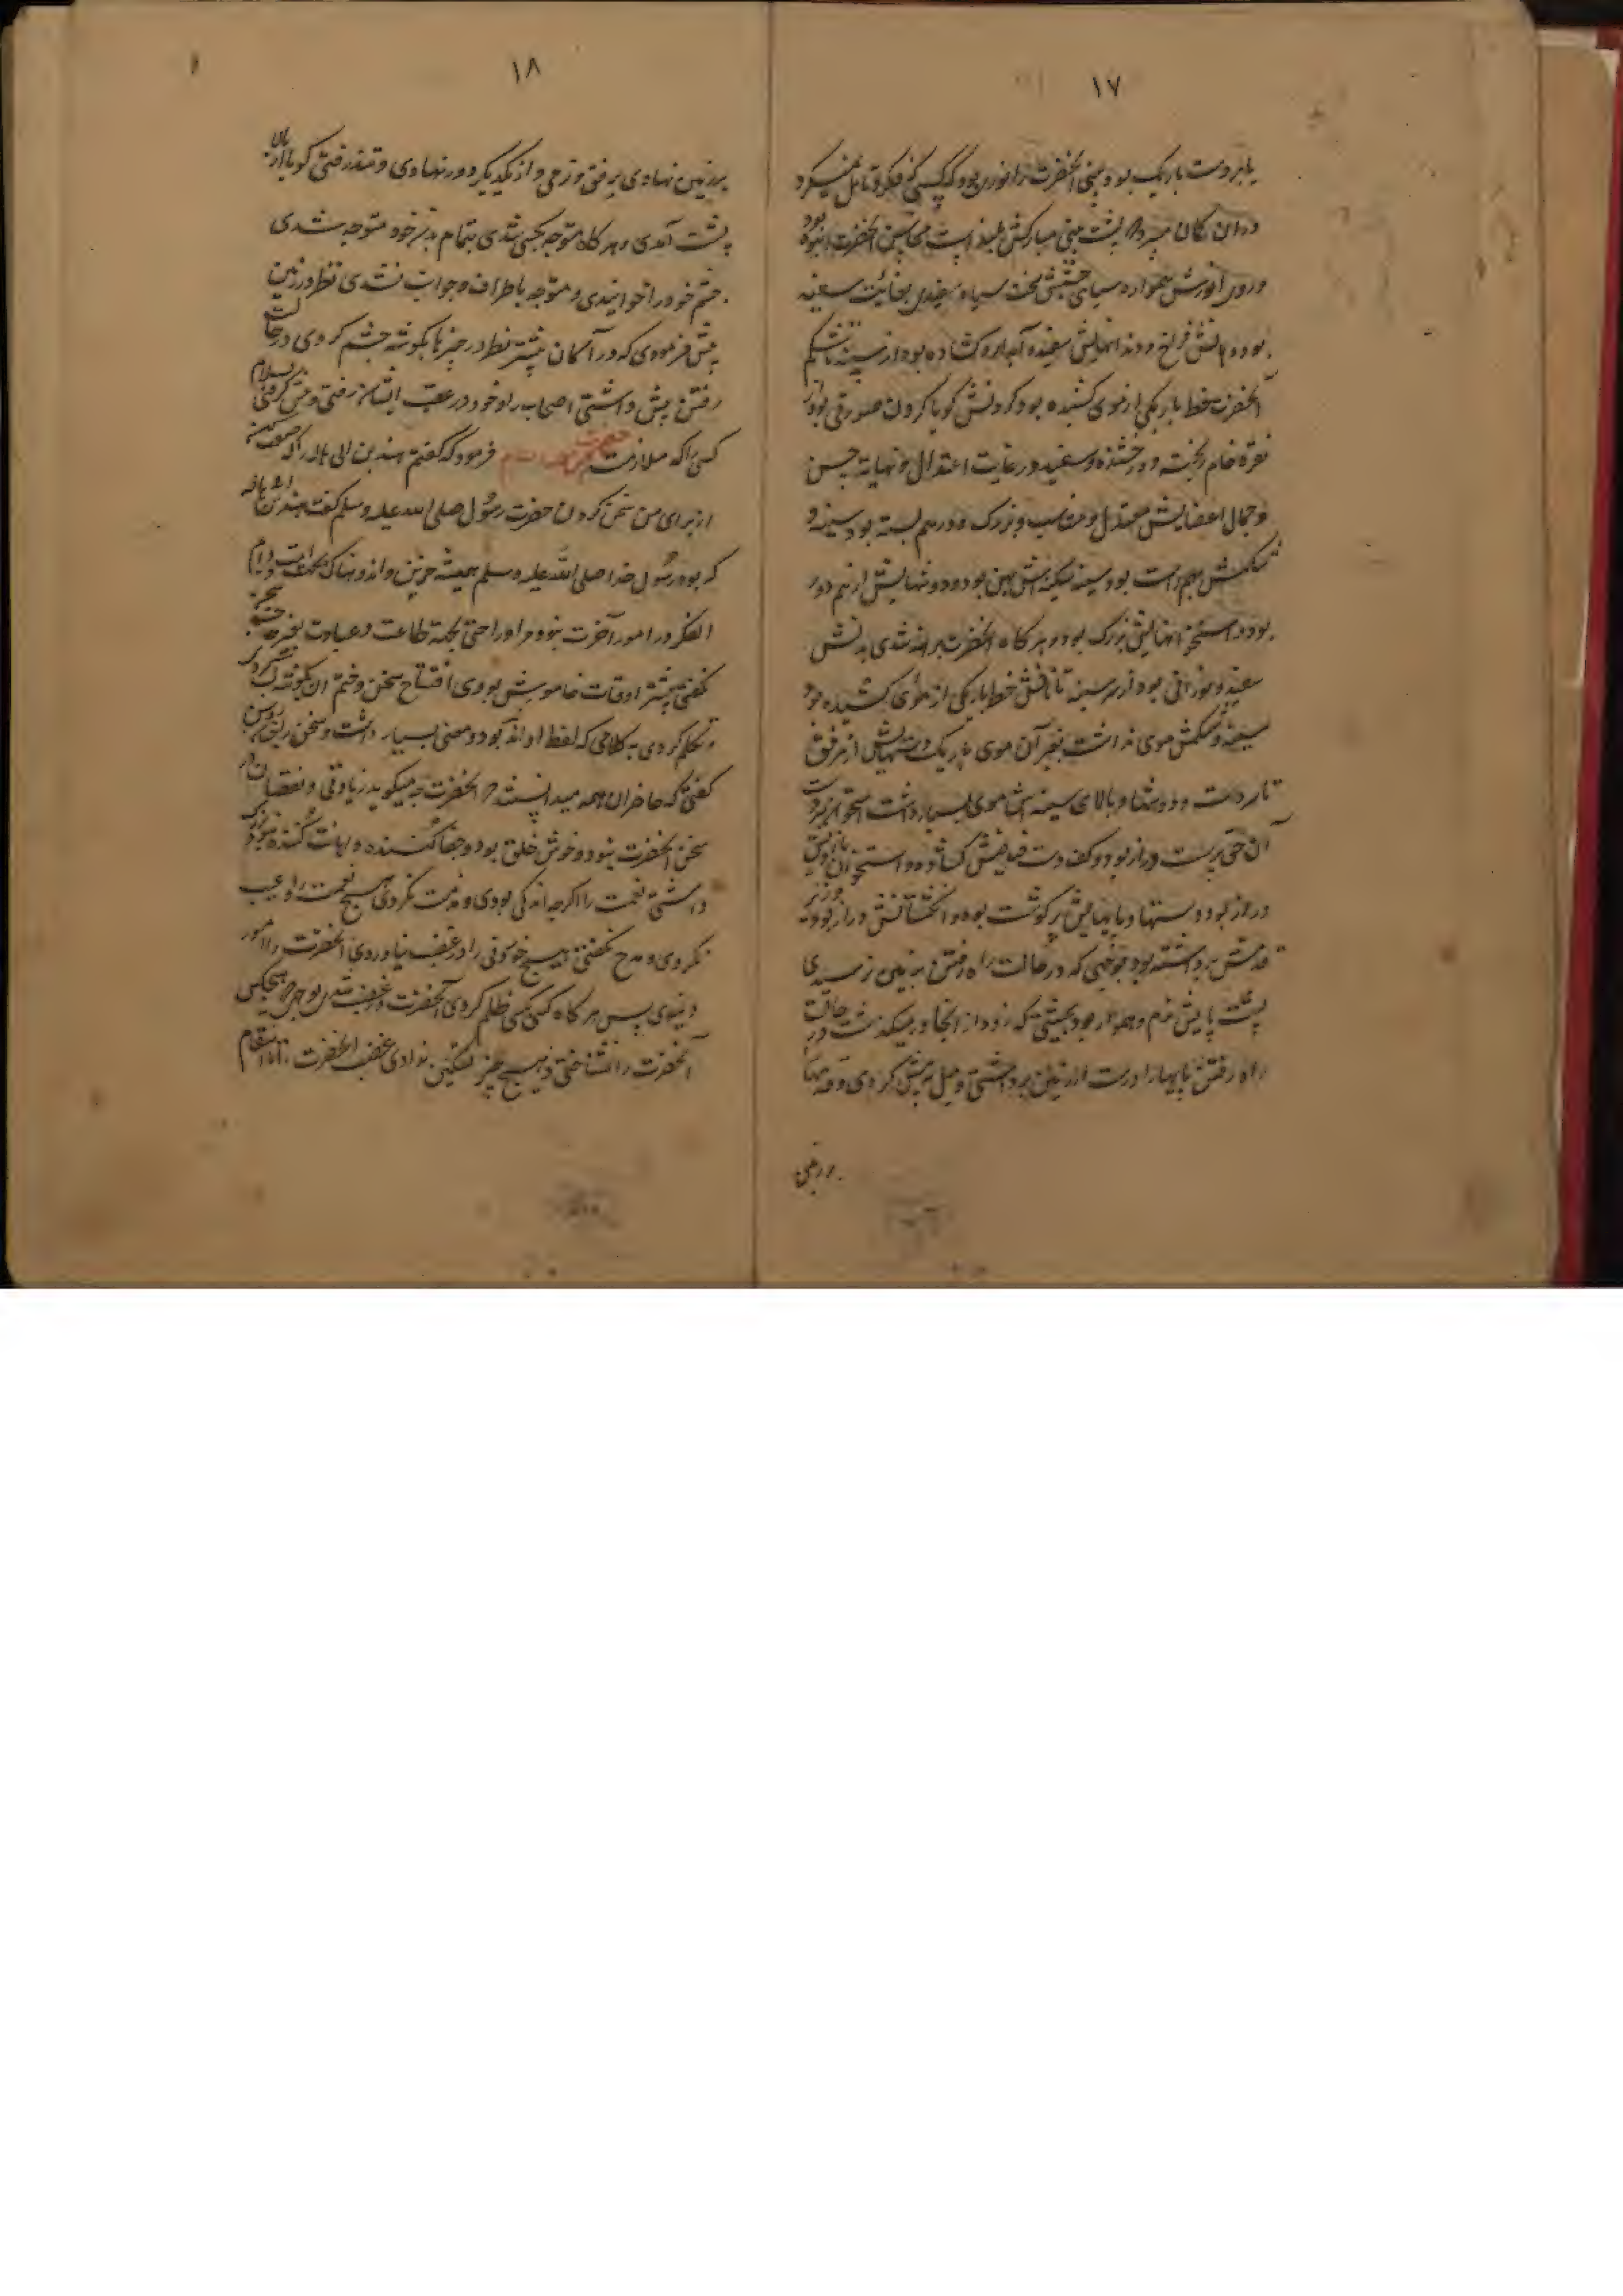 ۱۷
یا بروت باریک بود و بینی آنحضرت را نوری بود که کسی که فکر و تامل نمیکرد
در آن گمان میبرد که پشت بینی مبارکش بلند است محاسن آنحضرت انبوه بود
و روی انورش هموار و سیاهی چشمش سخت سیاه و سفیدی بغایت سفید
بود و دهانش فراخ و دندانهایش سفید و آبدار و کشاده بود از سینه تا شکم
آنحضرت خط باریکی از موی کشیده بود گردنش گویا گردن صورتی بود از
نقره خام ریخته و درخشنده و سفید در غایت اعتدال و نهایت حسن
و جمال اعضایش معتدل و مناسب و بزرگ و درهم بسته بود سینه و
شکمش بهم راست بود و سینه بیکینه اش پهن بود و دوشهایش از هم دور
بود و استخوانهایش بزرگ بود و هر گاه آنحضرت برهنه شدی بدنش
سفید و نورانی بود از سر سینه تا نافش خط باریکی از موی کشیده بود
سینه و شکمش موی نداشت بغیر آن موی باریک و دستهایش از مرفق
تا سر دست و دوشها و بالای سینه اش موی بسیار داشت استخوان بند دست
آن حق پرست دراز بود و کف دست فیاضش کشاده و استخوان بازویش
دراز بود و دستها و پایهایش پر گوشت بود و انگشتانش دراز بود و زیر
قدمش برداشته بود بنوعی که در حالت راه رفتن بزمین نرسیدی
پشت پایش نرم و هموار بود بحیثیتی که زود از آنجا آب میگذشت در حالت
راه رفتن پایها را درست از زمین برداشتی و میل به پیش کردی و قدمها
بر زمین
۱۸
بر زمین نهادی برفق و نرمی و از یکدیگر دور نهادی و تند رفتی گویا از بالا
به پشت آمدی و هر گاه متوجه بکسی شدی بتمام بدن خود متوجه شدی
چشم خود را خوابانیدی و متوجه باطراف و جوانب نشدی نظر در زمین
بیش فرمودی که در آسمان بیشتر نظر در چیزها بگوشه چشم کردی در حالت
رفتن پیش داشتی اصحاب را و خود در عقب ایشان رفتی و پیش گرفتی بسلام
کسی را که ملازمت حضرت فرمود که گفتم هند بن ابی هاله را که صفت کن
از برای من سخن کردن حضرت رسول صلی الله علیه و سلم گفت هند بن ابی هاله
که بود رسول خدا صلی الله علیه و سلم همیشه حزین و اندوهناک بجهت امت و دایم
الفکر در امور آخرت بنود مر او را راحتی بجهة طاعت و عبادت بغیر حاجت سخن
نگفتی بیشتر اوقات خاموش بودی افتتاح سخن و ختم آن بگوشه لب کردی
و تکلم کردی بکلامی که لفظ او اندک بود و معنی بسیار داشت و سخن را روشن
گفتی که حاضران همه میدانستند که آنحضرت چه میگوید زیادتی و نقصان در
سخن آنحضرت بنود و خوش خلق بود و جفا کننده و اهانت کننده نبود و بزرگ
داشتی نعمت را اگرچه اندکی بودی و مذمت نکردی هیچ نعمت را و عیب
نکردی و مدح نگفتی هیچ خوردنی را و در غضب نیاوردی آنحضرت را امور
دنیوی پس هر گاه کسی بکسی ظلم کردی آنحضرت در غضب شدی بوجهی که هیچکس
آنحضرت را نشناختی و هیچ چیز تسکین ندادی غضب آنحضرت تا انتقام